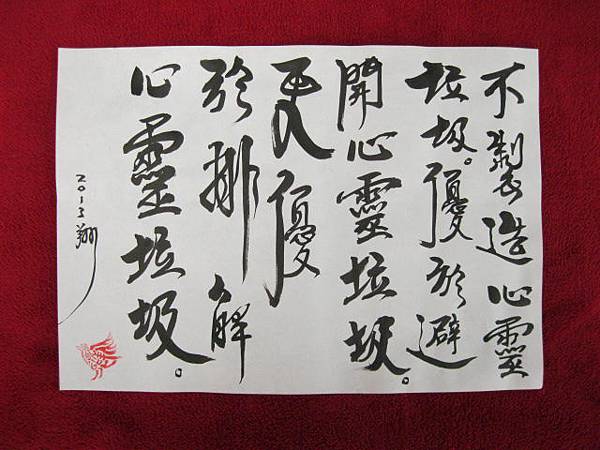 不製造心靈
垃圾。優於避
開心靈垃圾。
更優
於排解
心靈垃圾。
2013翔